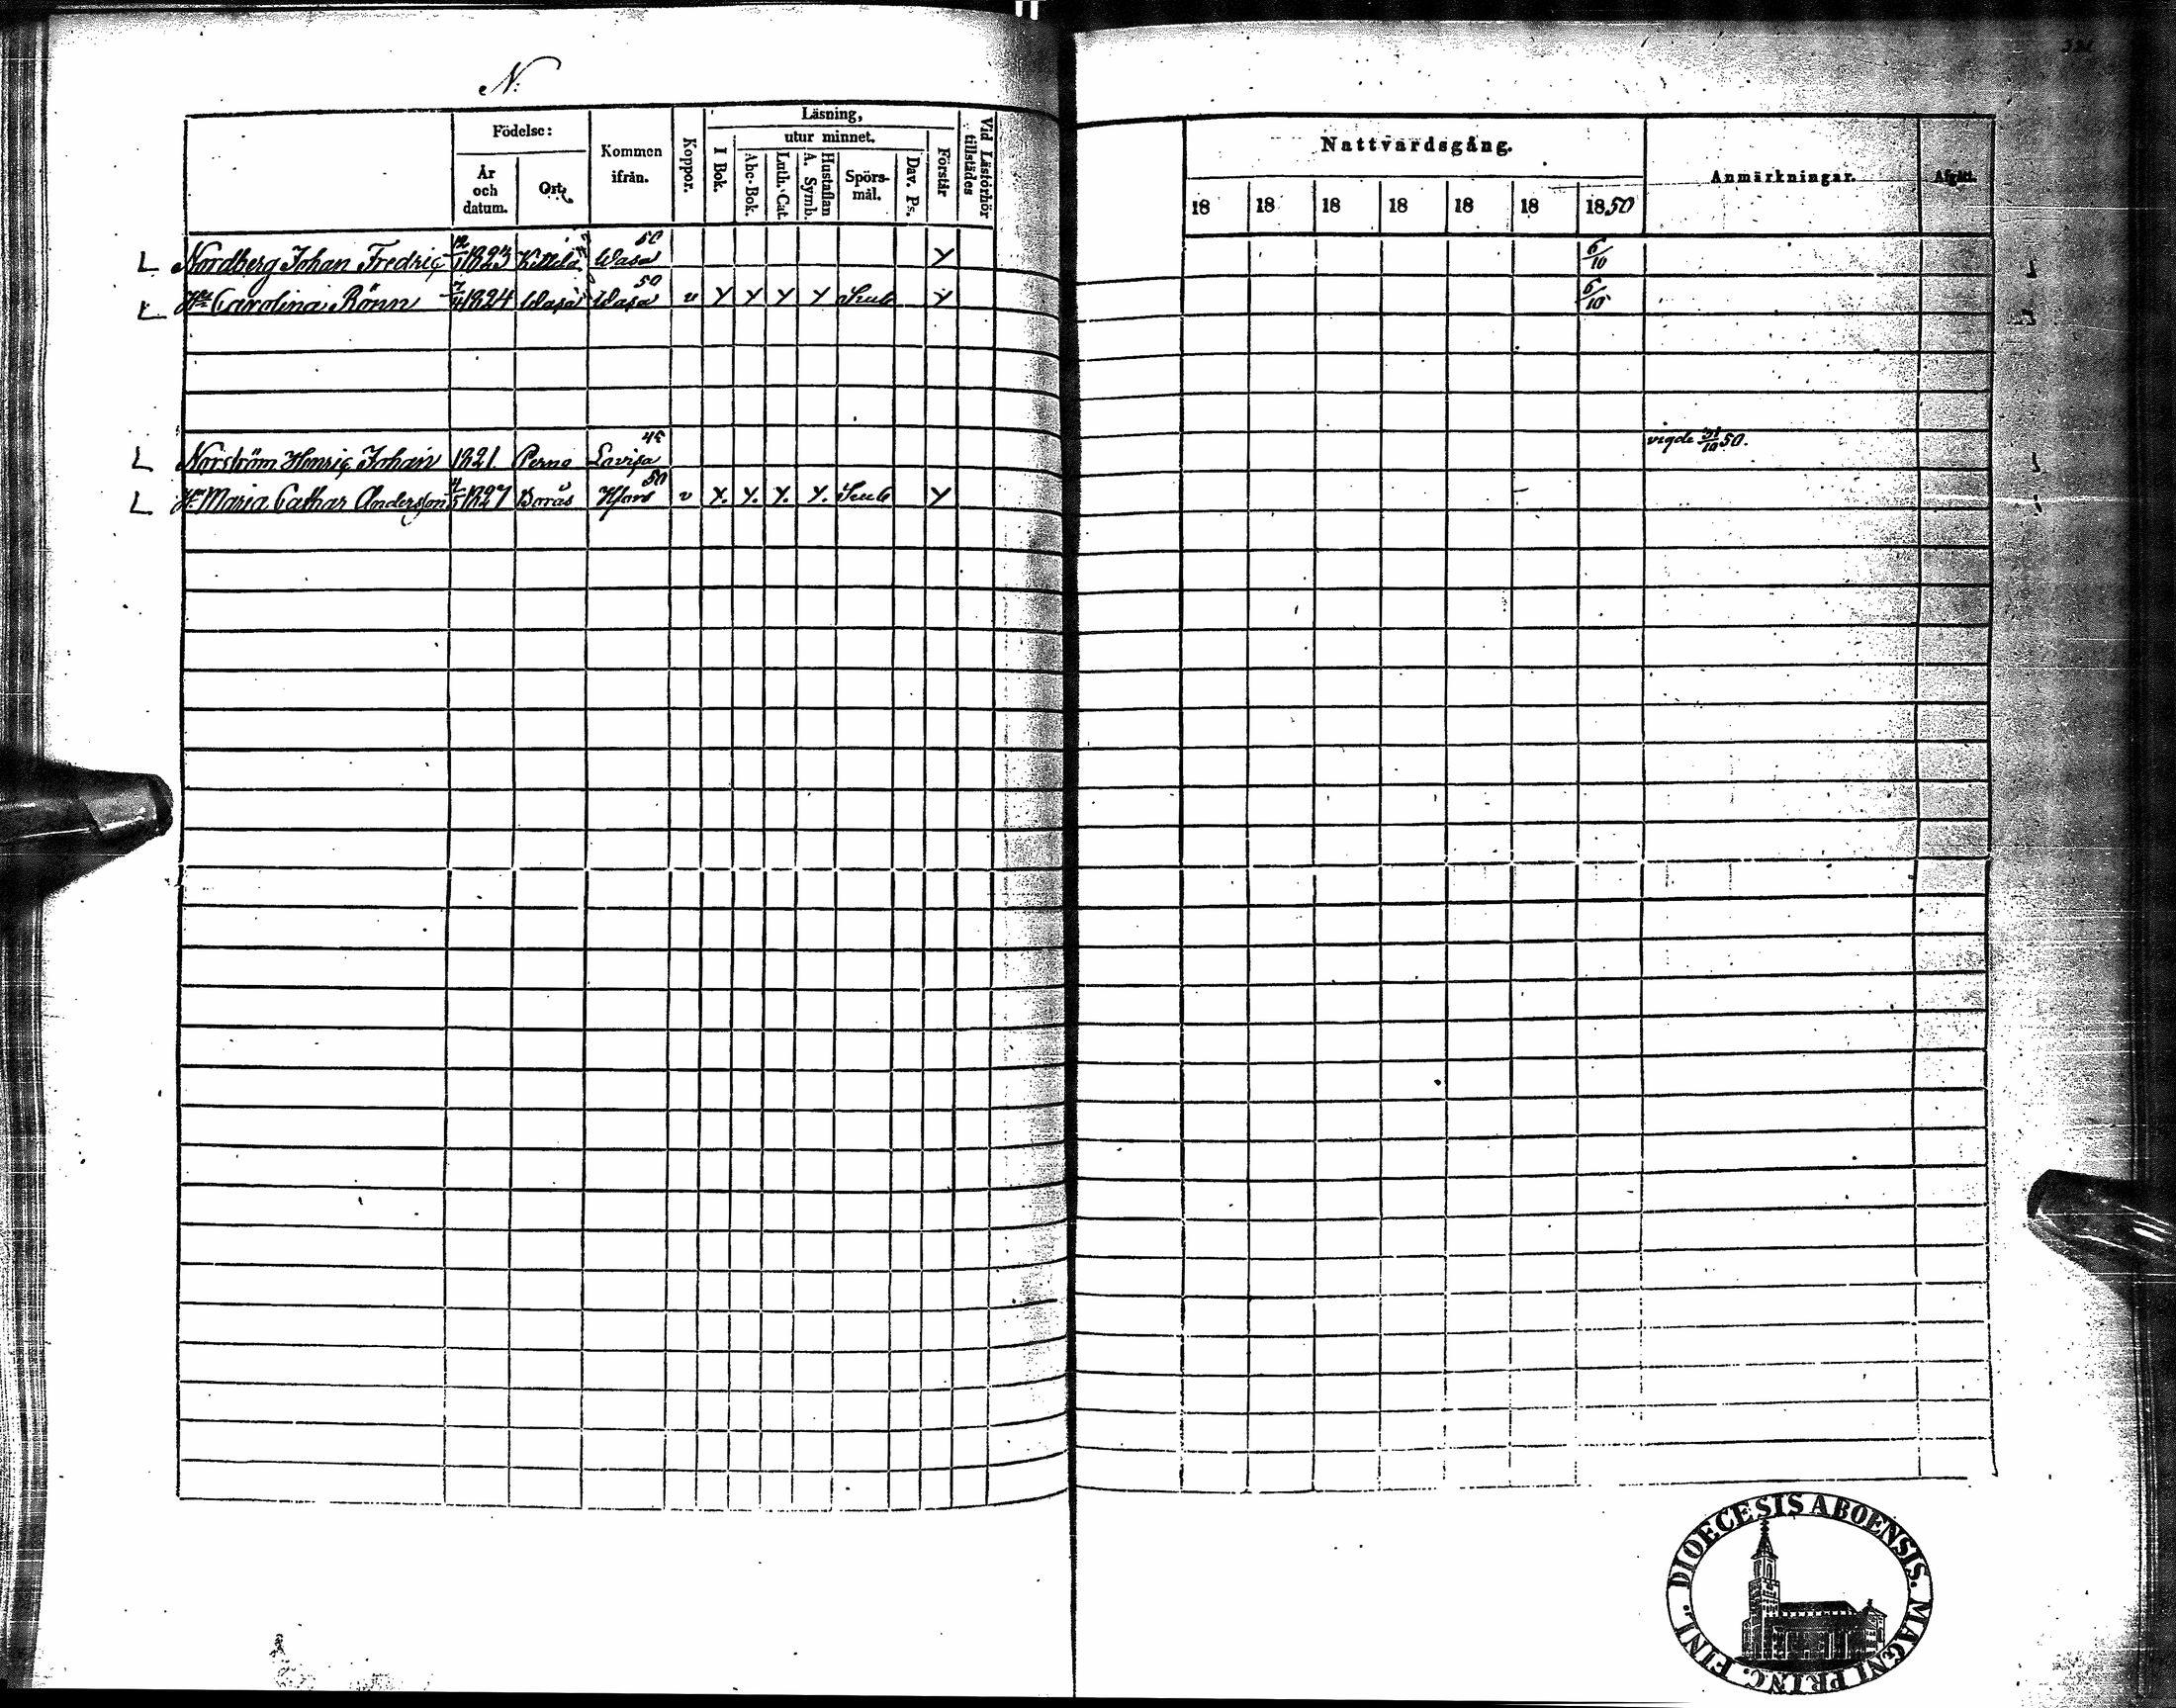 N:
Födelse:
År och datum.
Ort.
Kommen ifrån.
Koppor.
Läsning,
I Bok.
utur minnet.
Abc-Bok.
Luth. Cat.
Hustaflan A. Symb.
Spörsmål.
Dav. Ps.
Förstår
Vid Läsförhör tillstädes
Nattvardsgång.
18 18 18 18 18 18 1850
Anmärkningar.
Afgått.
L Nordberg Johan Fredric 12/1 1823 Kittilä Wasa 50 Y 6/10
L Hu Carolina Rönn 7/4 1824 Wasa Wasa 50 v Y Y Y Y Y 6/10
L Norström Henric Johan 1821. Perno Lovisa 45 vigde 31/10 50.
L Hu Maria Cathar Andersson 4/5 1827 Borås Hfors 50 v Y. Y. Y. Y. Y
DIOECESIS ABOENSIS. MAGNI PRINC. FINL